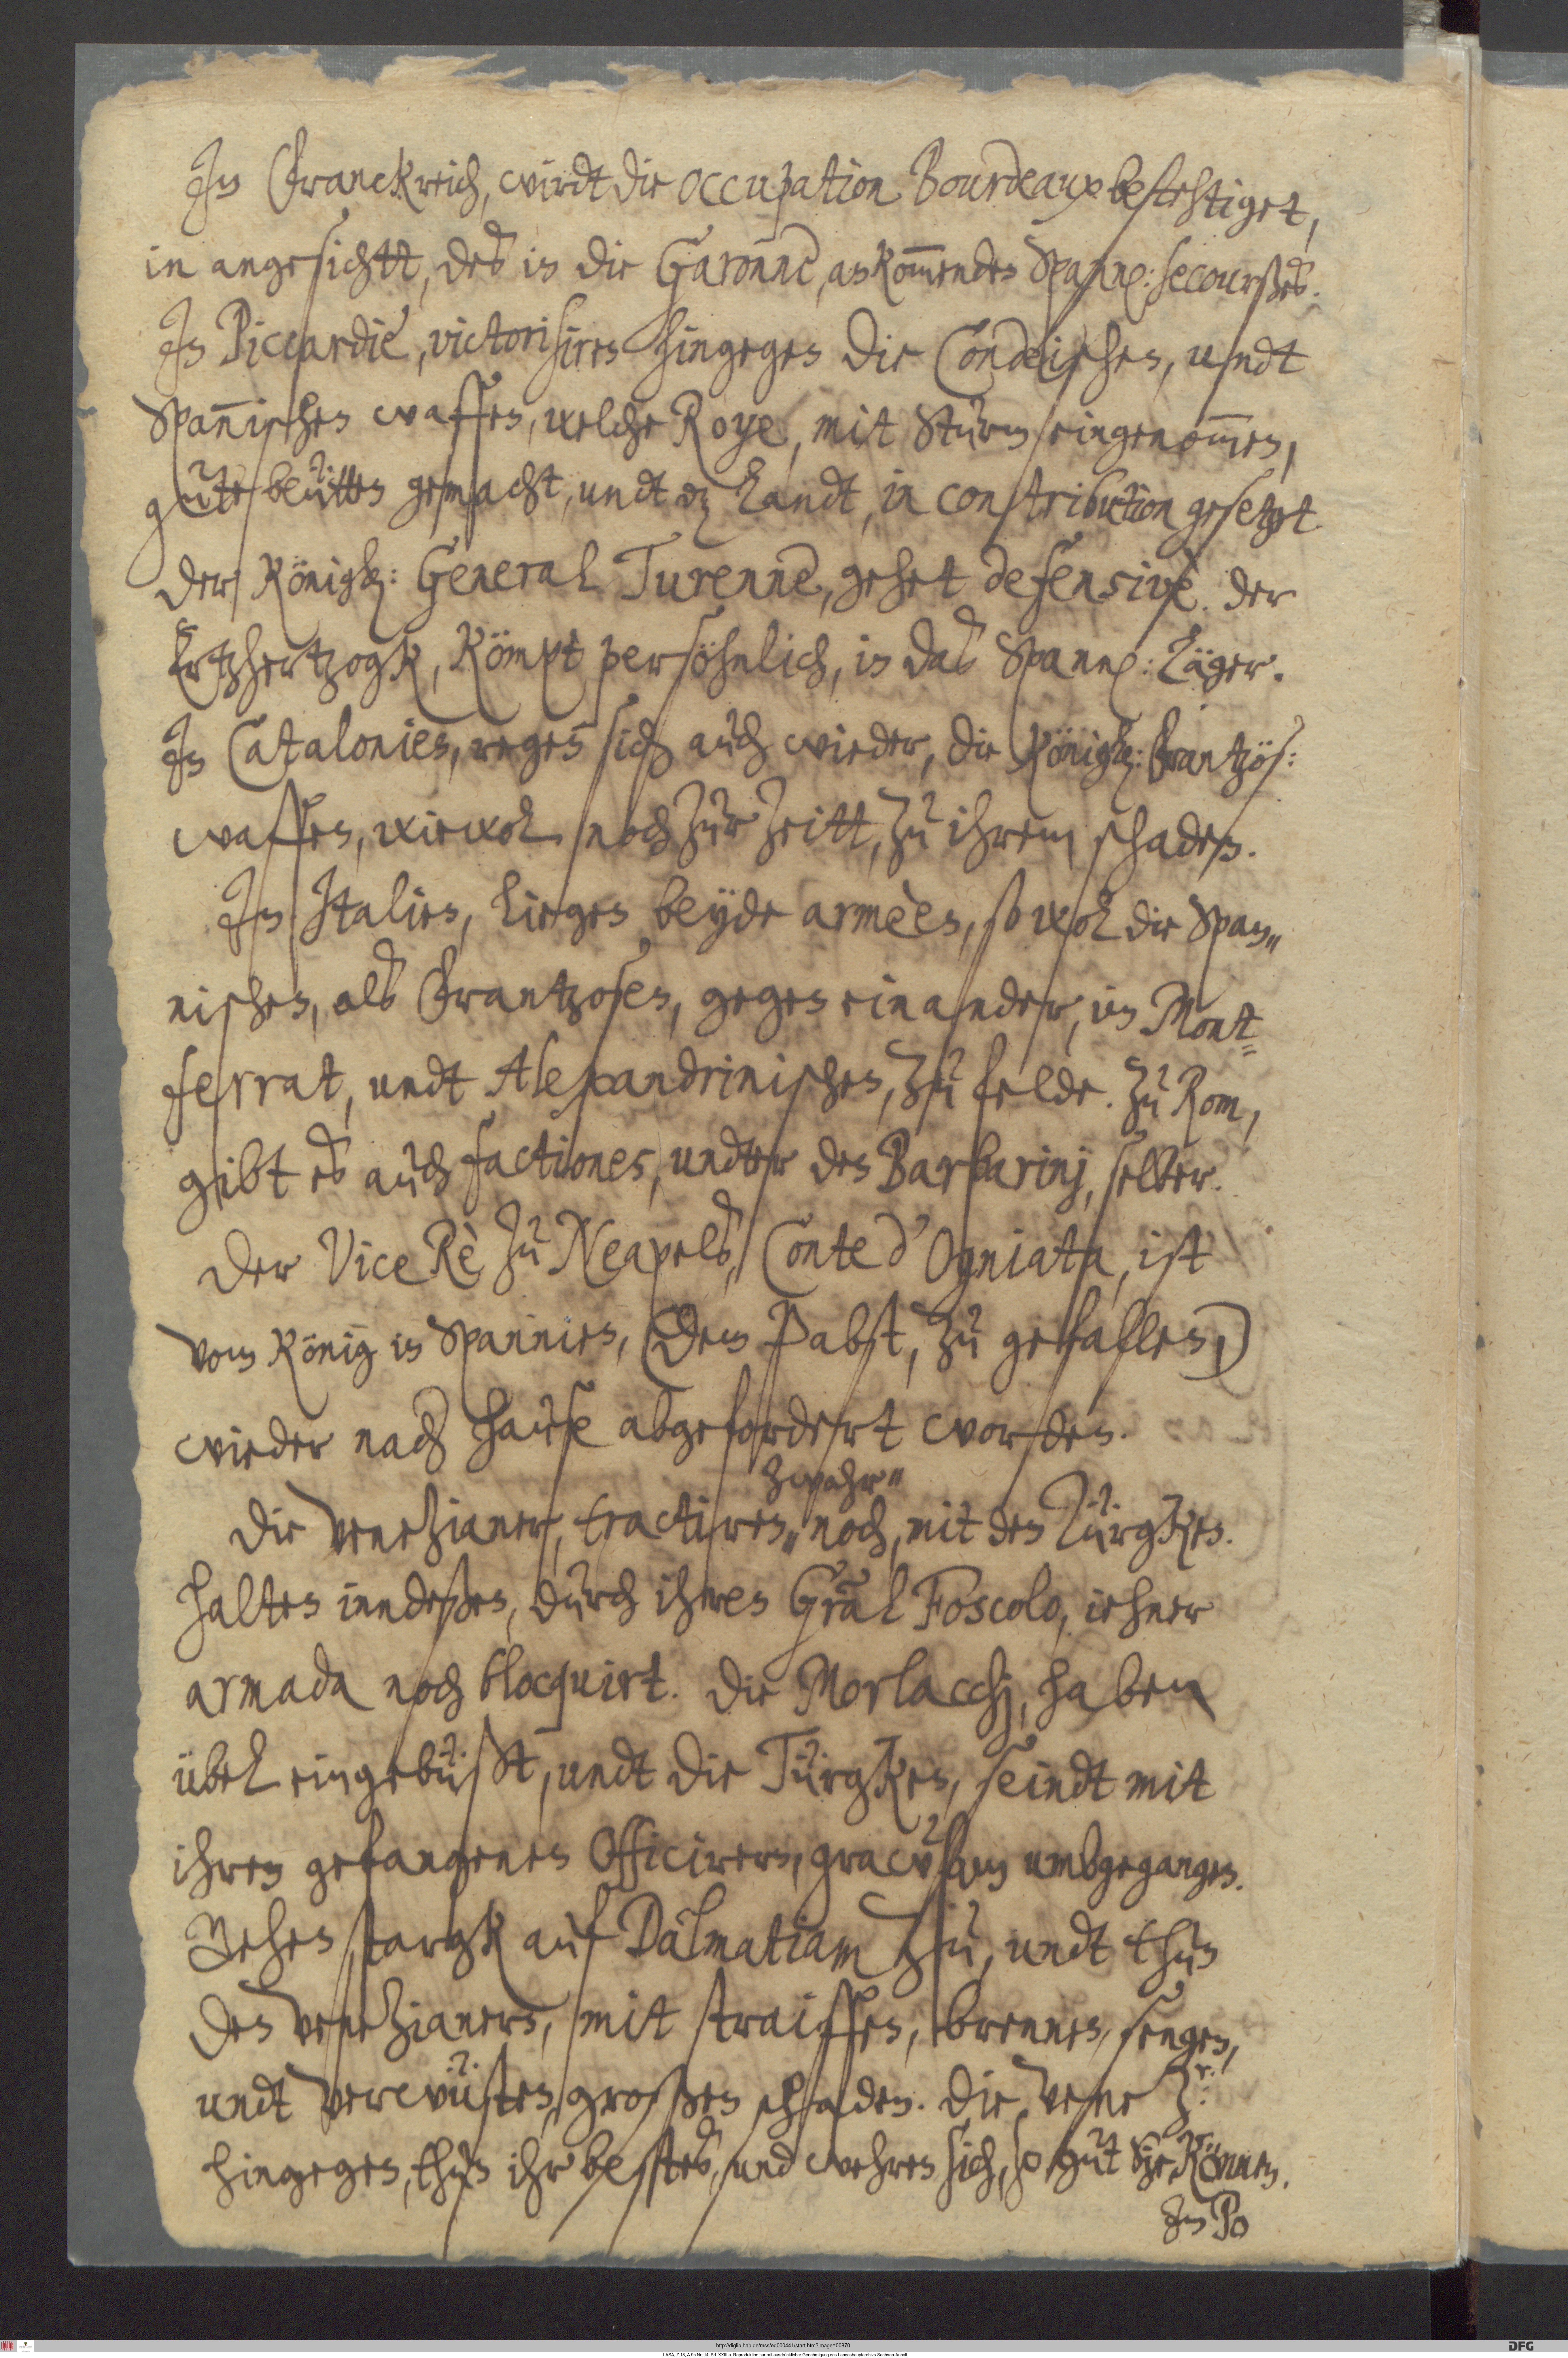 In Franckreich, wirdt die occupation Bourdeaux befestiget,
in angesichtt, des in die Garonne, ankommenden Spann: secourßes.
In Piccardie, victorisiren hingegen die Condeischen, undt
Spannischen waffen, welche Roye, mit Sturm eingenommen,
gute beütten gemacht, undt dz Landt, in contribution gesetzt.
der Königl: General Turenne, gehet defensive. der
Ertzhertzogk, kömpt persöhnlich, in das Spann: Läger.
In Catalonien, regen sich auch wieder, die Königl: Frantzös:
waffen, wiewol noch zur zeitt, zu ihrem schaden.
In Italien, liegen beyde armèen, so wol die Span„
nischen, als Frantzosen, gegen einander, im Mont=
ferrat, undt Alexandrinischen, zu felde. Zu Rom,
gibt es auch factiones, undter den Barbarinj, selber.
Der Vice Rè zu Neapels, Conte d'Ogniata, ist
vom König in Spannien, (dem Pabst, zu gefallen,)
wieder nach Hause abgefordert worden.
zwahr„
Die Venezianer, tractiren„ noch, mit den Türgken.
halten inndeßen, durch ihren Gräl Foscolo, iehner
armada noch blocquirt. Die Morlacchj, haben
übel eingebüßt, undt die Türgken, seindt mit
ihren gefangenen Officirern, grawsam umbgegangen.
Gehen stargk auf Dalmatiam zu, undt thun
den Venezianern, mit straiffen, brennen, sengen,
undt verwüsten, großen schaden. Die Vene Zr:
hingegen, thun ihr bestes, und wehren sich, so gut sie können.
In Po